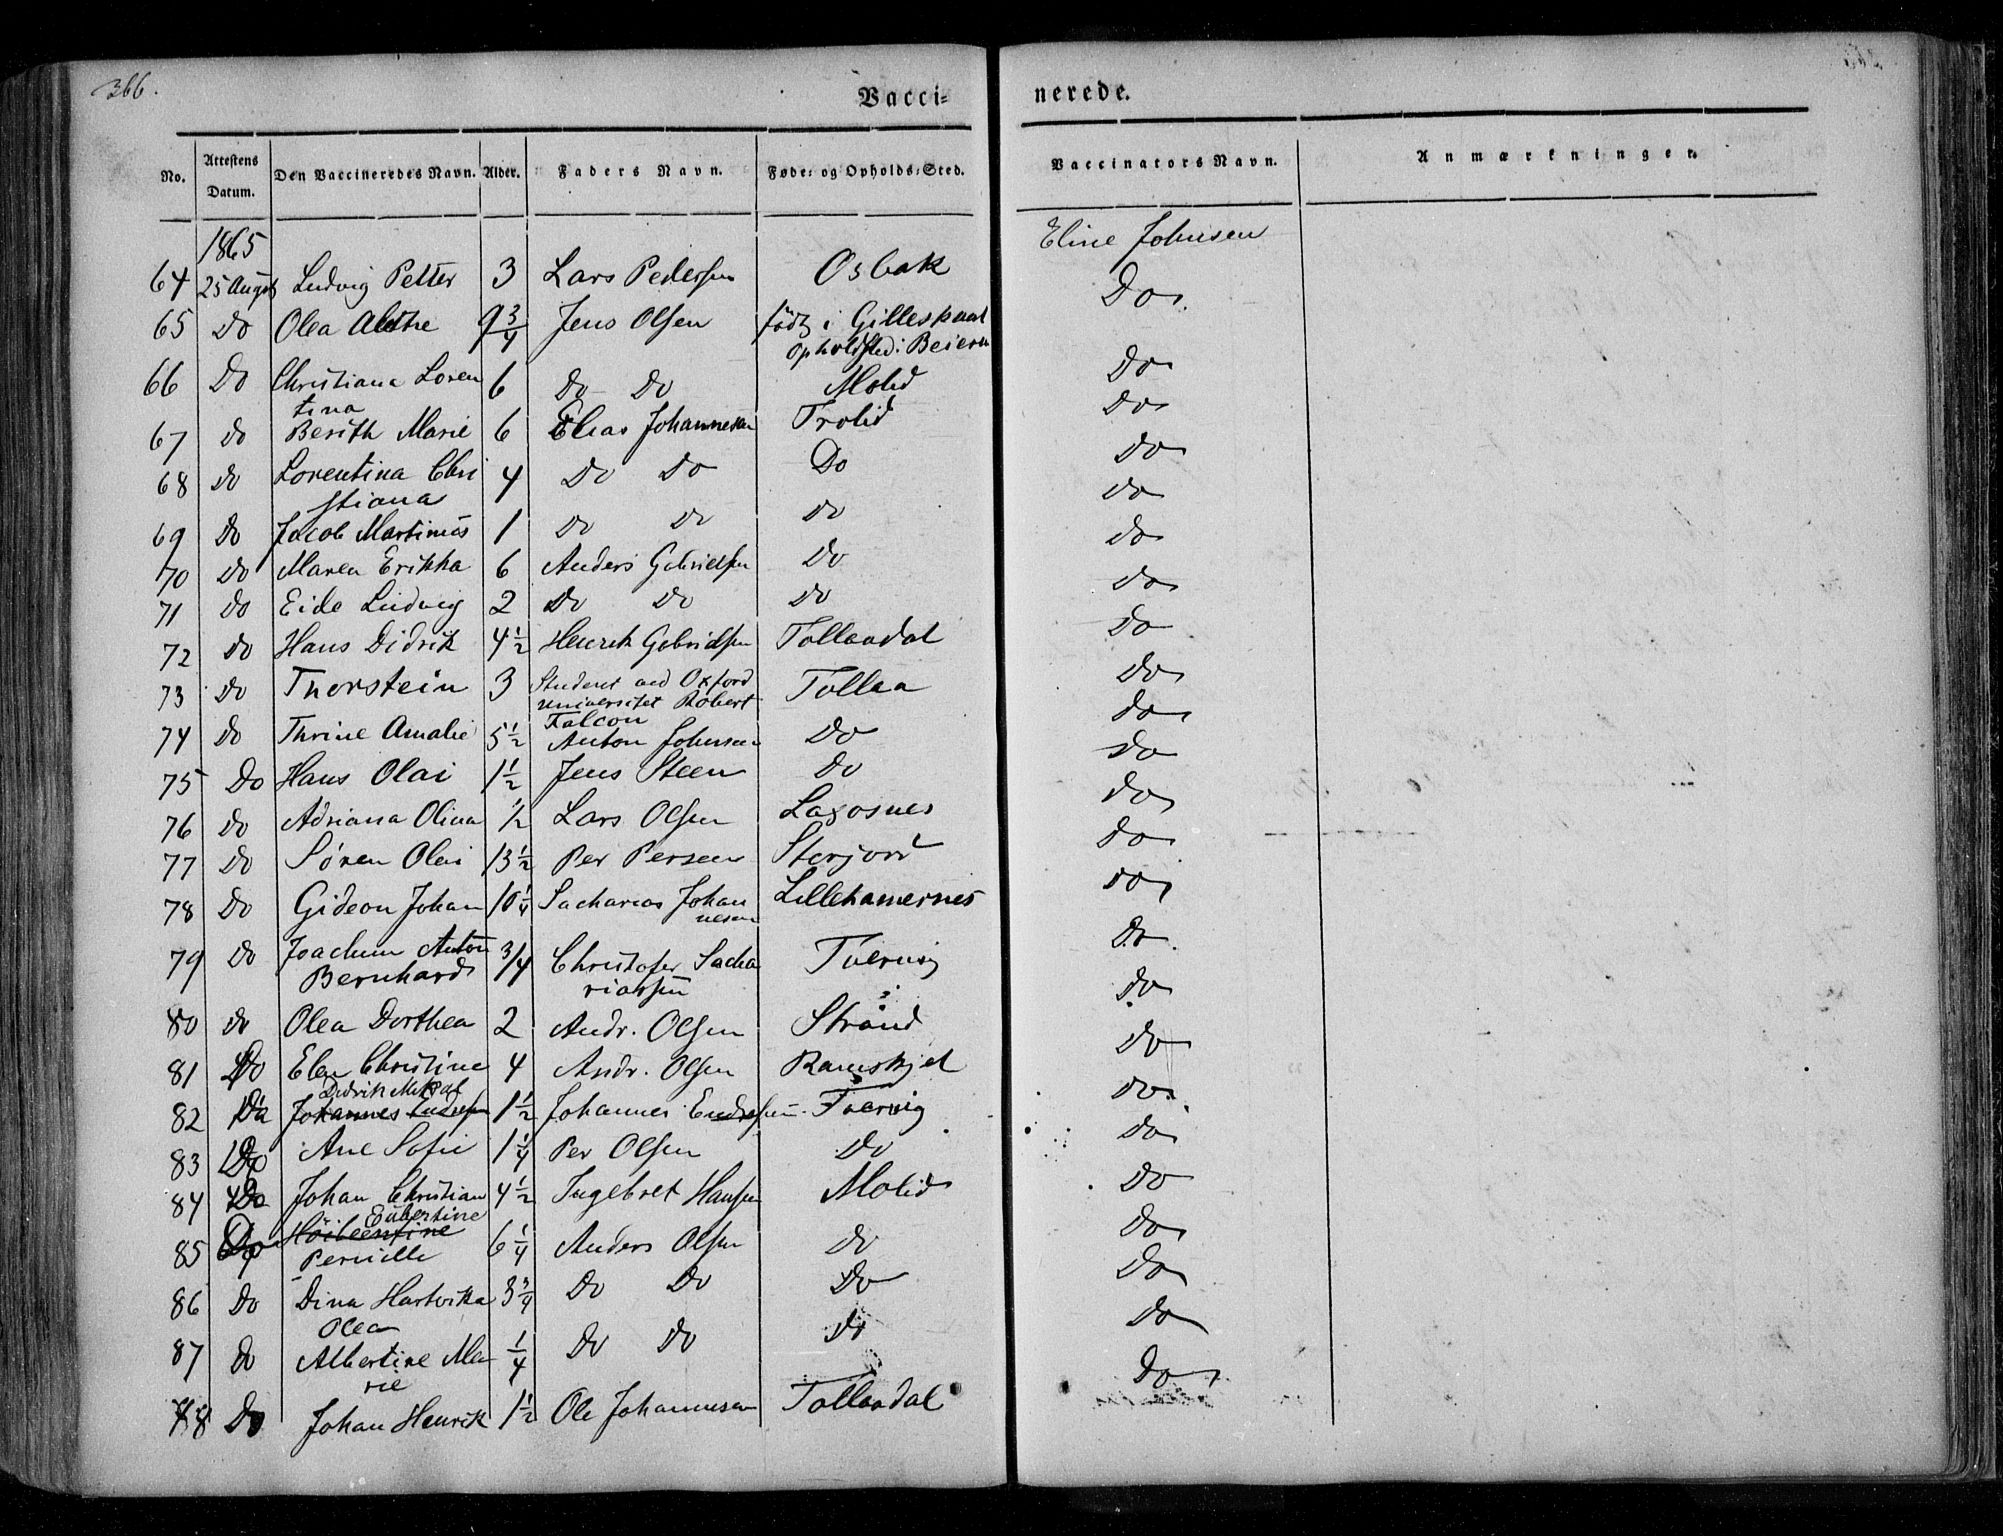 366.
Vacci- nerede.
No. Attestens Datum. Den Vaccineredes Navn. Alder. Faders Navn. Føde- og Opholds-Sted. Vaccinators Navn. Anmærkninger.
1865 Eline Johnsen
64 25 August Ludvig Petter 3 Lars Pedersen Osbak Do
65 Do Olea Alethe 9 3/4 Jens Olsen født i Gilleskaal
opholdsted i Beiern Do
66 Do Christiana Loren 6 Do Do Molid Do
tina
67 Do Berith Marie 6 Elias Johannesen Trolid Do
68 Do Lorentina Chri 4 Do Do Do Do
stiana
69 Do Jacob Martinus 1 Do Do Do Do
70 Do Maren Erikka 6 Anders Gabrielsen Do Do
71 Do Eide Ludvig 2 Do Do Do Do
72 Do Hans Didrik 4 1/2 Henrik Gabrielsen Tollaadal Do
73 Do Thorstein 3 Student ved Oxford Tollaa Do
universitet Robert
Falcon
74 Do Thrine Amalie 5 1/2 Anton Johnsen Do Do
75 Do Hans Olai 1 1/2 Jens Steen Do Do
76 Do Adriana Olina 1/2 Lars Olsen Laxosnes Do
77 Do Søren Olai 13 1/2 Per Persen Storjord Do
78 Do Gideon Johan 10 1/4 Sacharias Johan Lillehamernes Do
nesen
79 Do Joachim Anton 3/4 Christofer Sacha Tvervig Do
Bernhard riassen
80 Do Olea Dorthea 2 Andr. Olsen Strand Do
81 Do Elen Christine 4 Andr. Olsen Ramskjel Do
Didrik
82 Do Johannes 1 1/2 Johannes Endresen Tvervig Do
83 Do Ane Sofie 1 1/4 Per Olsen Do Do
84 Do Johan Christian 4 1/2 Ingebret Hansen Molid Do
Eubertine
85 Do Pernille 6 1/4 Anders Olsen Do Do
86 Do Dina Hartvika 3 3/4 Do Do Do Do
Olea
87 Do Albertine Ma 1/4 Do Do Do Do
rie
88 Do Johan Henrik 1 1/2 Ole Johannesen Tollaadal Do